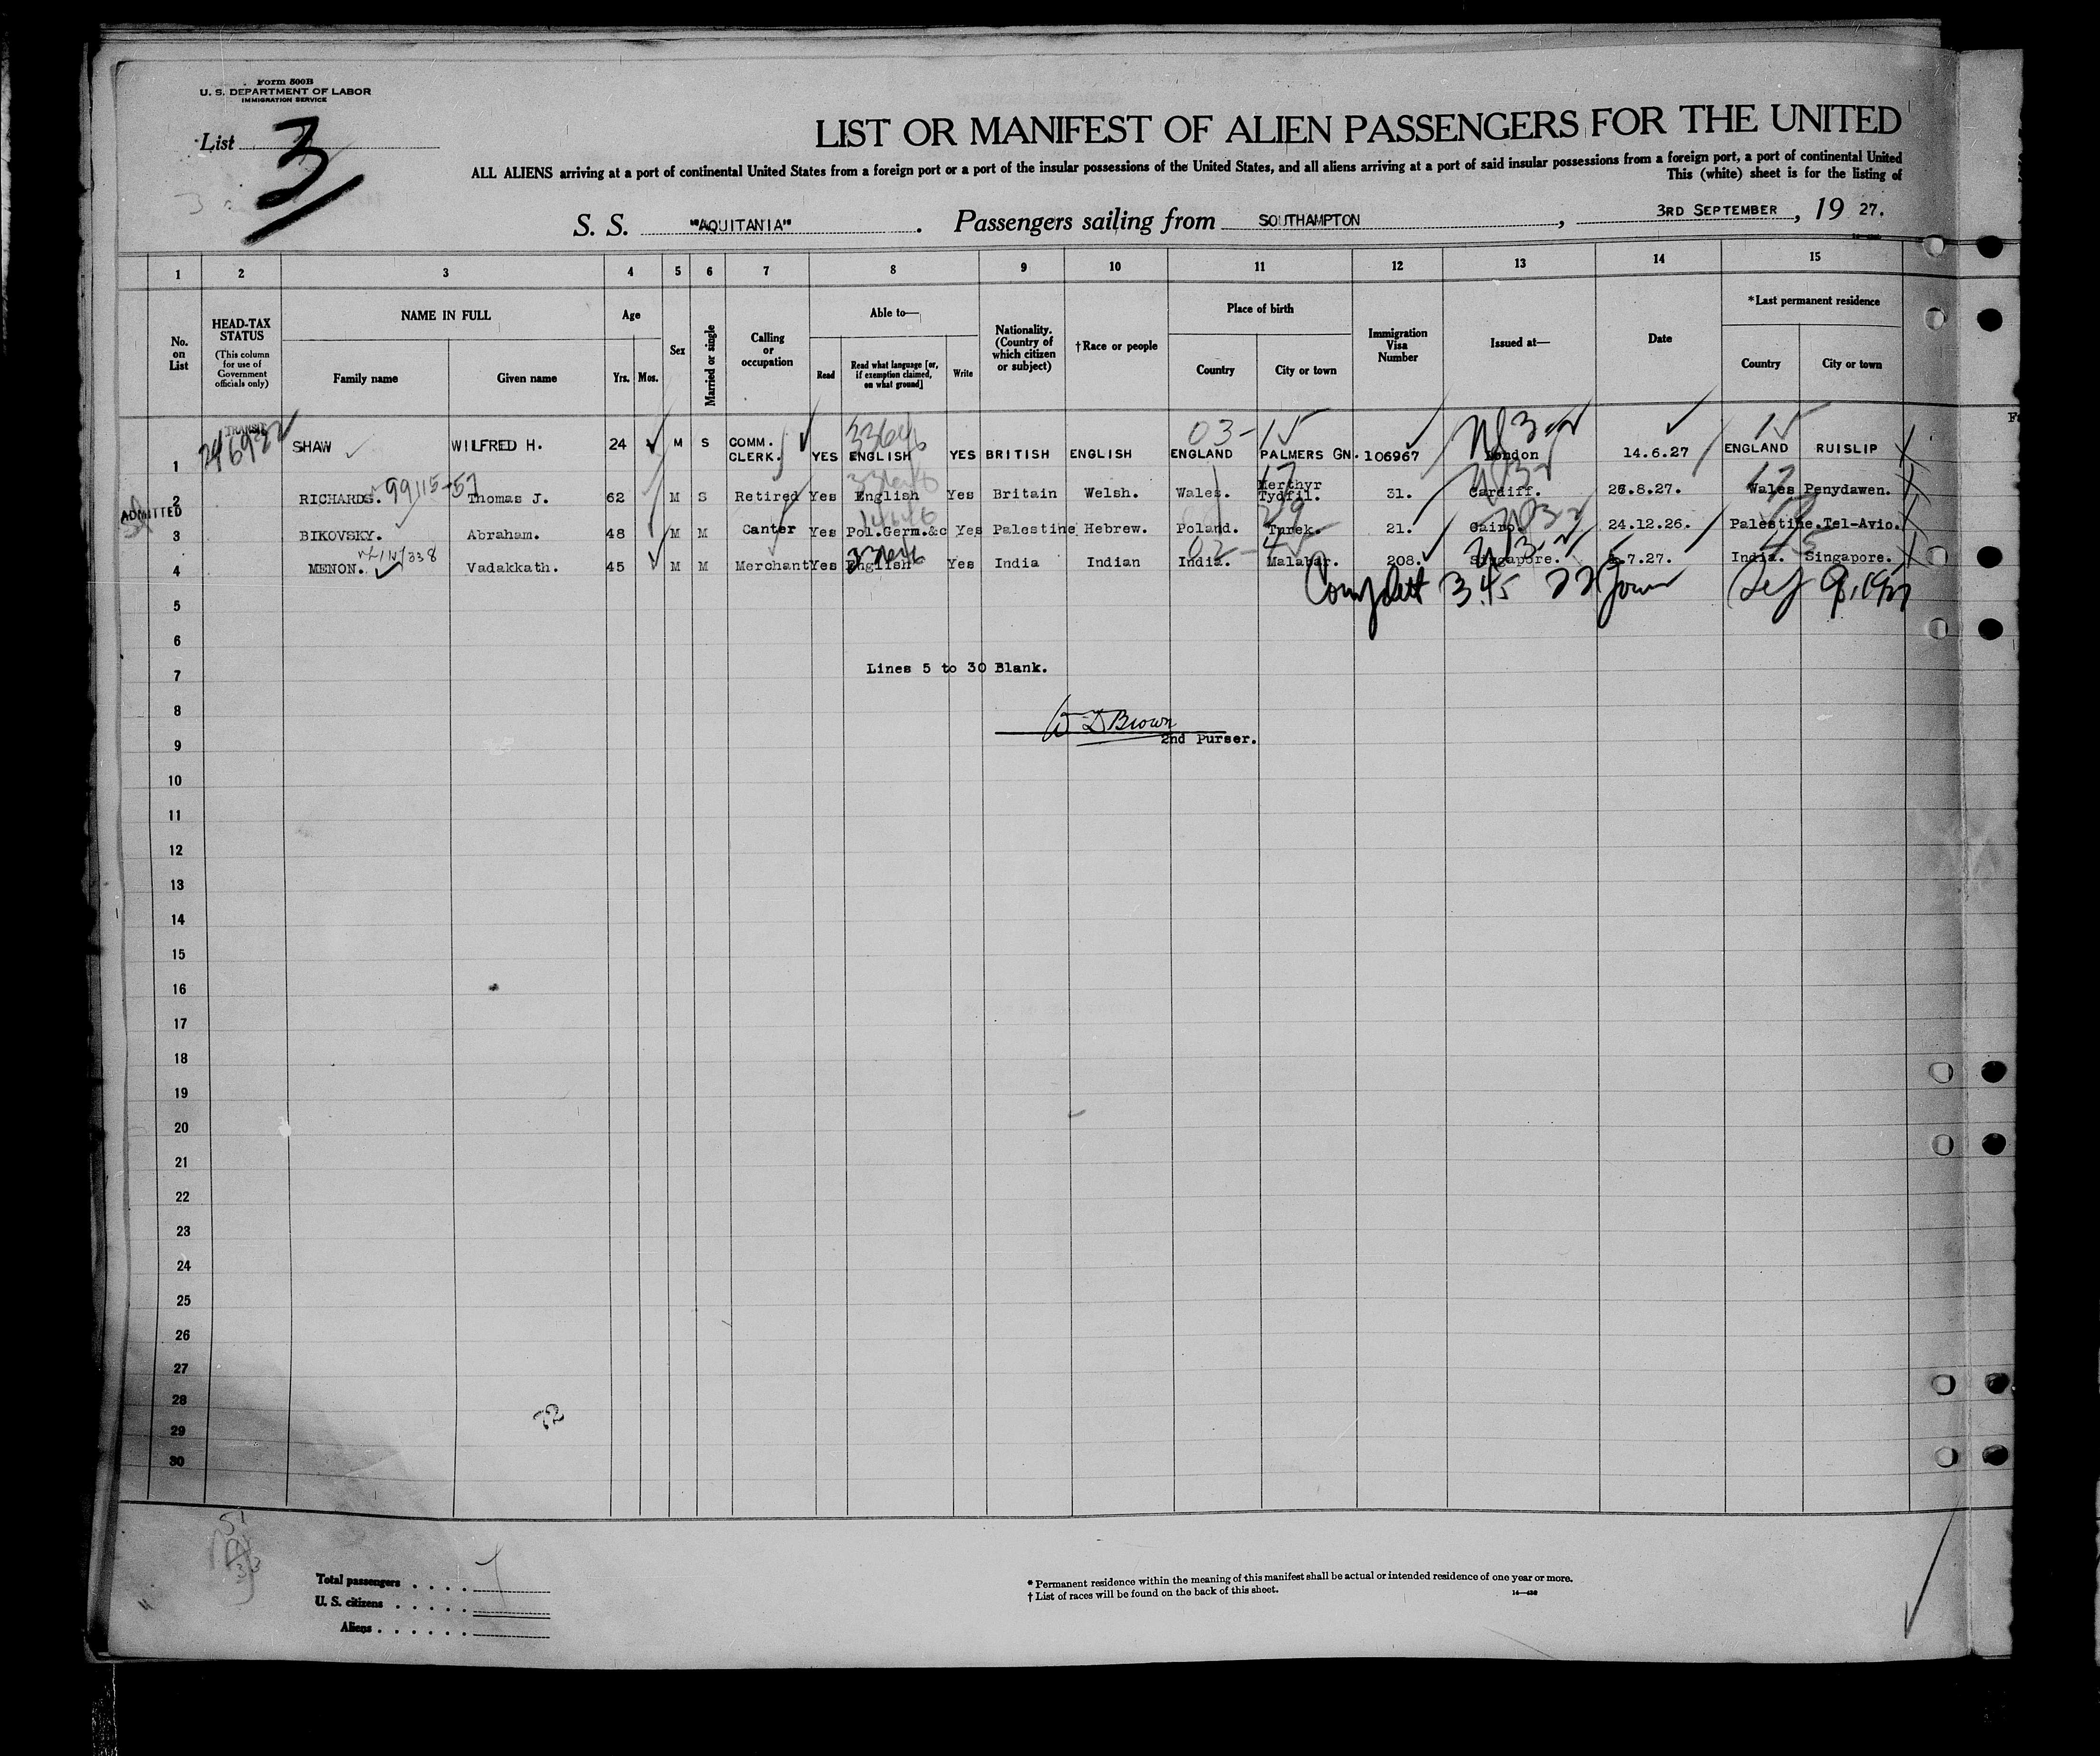 Form 500B
U. S. DEPARTMENT OF LABOR
IMMIGRATION SERVICE
List 3
LIST OR MANIFEST OF ALIEN PASSENGERS FOR THE UNITED
ALL ALIENS arriving at a port of continental United States from a foreign port or a port of the insular possessions of the United States, and all aliens arriving at a port of said insular possessions from a foreign port, a port of continental United
This (white) sheet is for the listing of
S. S. "AQUITANIA". Passengers sailing from SOUTHAMPTON, 3RD SEPTEMBER, 19 27.
1 2 3 4 5 6 7 8 9 10 11 12 13 14 15
No. on List
HEAD-TAX STATUS
(This column for use of Government officials only)
NAME IN FULL
Family name Given name
Age
Yrs. Mos.
Sex
Married or single
Calling or occupation
Able to—
Read
Read what language [or, if exemption claimed, on what ground]
Write
Nationality. (Country of which citizen or subject)
†Race or people
Place of birth
Country City or town
Immigration Visa Number
Issued at—
Date
*Last permanent residence
Country City or town
TRANSIT
1 SHAW WILFRED H. 24 M S COMM. CLERK. YES ENGLISH YES BRITISH ENGLISH ENGLAND PALMERS GN. 106967 London 14.6.27 ENGLAND RUISLIP
33646
03-15
2 RICHARDS. 99115-57 Thomas J. 62 M S Retired Yes English Yes Britain Welsh. Wales. Merthyr Tydfil. 31. Cardiff. 26.8.27. Wales Penydawen.
ADMITTED
3 BIKOVSKY. Abraham. 48 M M Canter Yes Pol.Germ.&c Yes Palestine Hebrew. Poland. Turek. 21. Cairo. 24.12.26. Palestine. Tel-Avio.
4 MENON. Vadakkath. 45 M M Merchant Yes English Yes India Indian India. Malabar. 208. Singapore. 7.27. India. Singapore.
5
6
Lines 5 to 30 Blank.
7
8
W D Brown
2nd Purser.
9
10
11
12
13
14
15
16
17
18
19
20
21
22
23
24
25
26
27
28
72
29
30
Total passengers
U. S. citizens
Aliens
* Permanent residence within the meaning of this manifest shall be actual or intended residence of one year or more.
† List of races will be found on the back of this sheet.